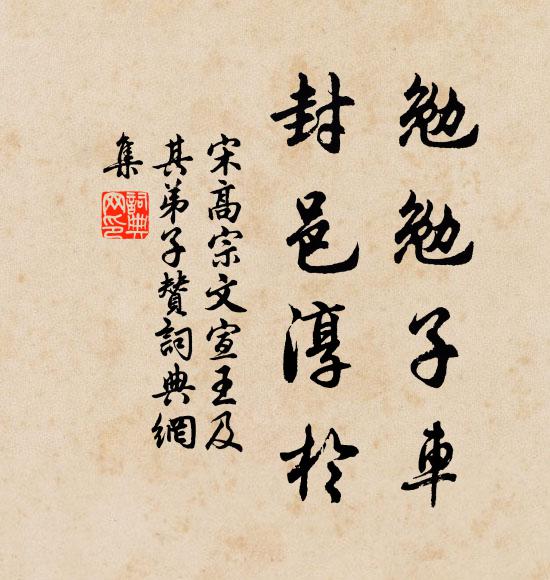 勉勉子車
封邑淳於
宋高宗文宣王及
其弟子贊詞典網
集
詞典
网印